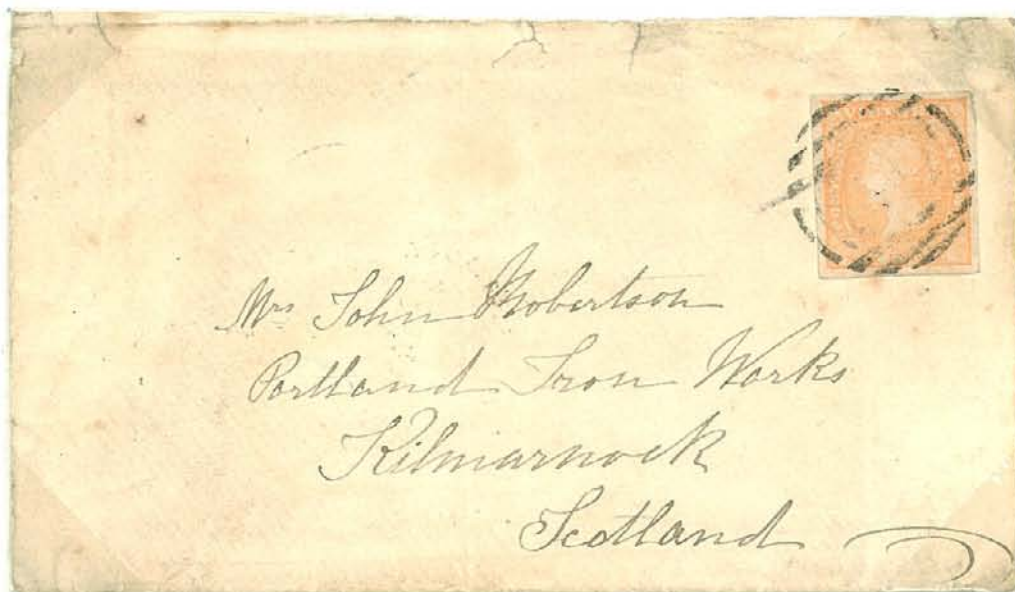 Mrs John Robertson
Portland Iron Works
Kilmarnock
Scotland